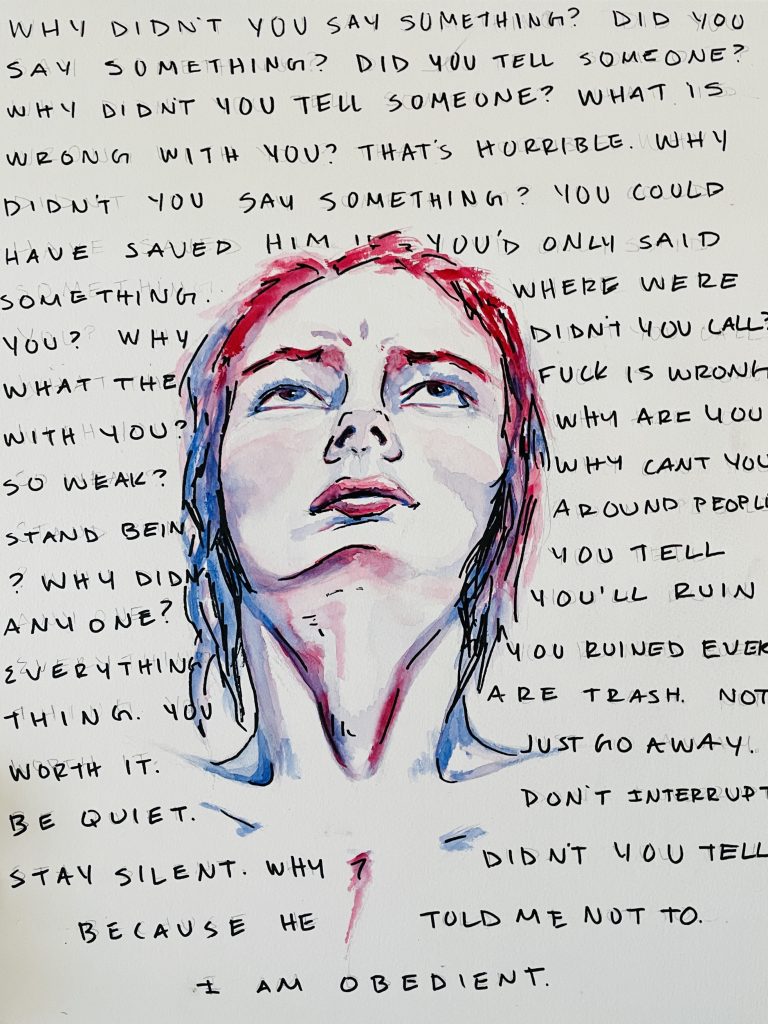 WHY DIDN'T YOU SAY SOMETHING? DID YOU
SAY SOMETHING? DID YOU TELL SOMEONE?
WHY DIDN'T YOU TELL SOMEONE? WHAT IS
WRONG WITH YOU? THAT'S HORRIBLE. WHY
DIDN'T YOU SAY SOMETHING? YOU COULD
HAVE SAVED HIM YOU'D ONLY SAID
SOMETHING. WHERE WERE
YOU? WHY DIDN'T YOU CALL?
WHAT THE FUCK IS WRONG
WITH YOU? WHY ARE YOU
SO WEAK? WHY CANT YOU
STAND BEIN AROUND PEOPL
? WHY DIDN YOU TELL
ANYONE? YOU'LL RUIN
EVERYTHING YOU RUINED EVER
THING. YOU ARE TRASH. NOT
WORTH IT. JUST GO AWAY.
BE QUIET. DON'T INTERRUPT
STAY SILENT. WHY DIDN'T YOU TELL
? BECAUSE HE TOLD ME NOT TO.
I AM OBEDIENT.